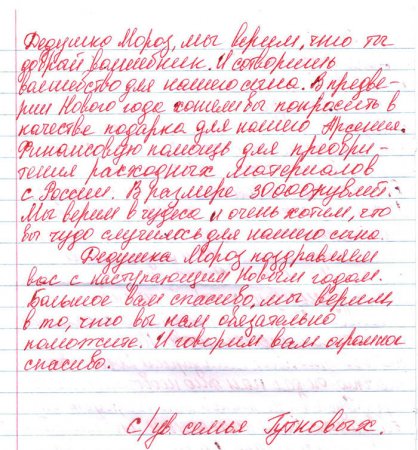 Дедушка Мороз, мы верим, что ты
добрый волшебник. И сотворишь
волшебство для нашего сына. В предве-
рии Нового года хотели бы попросить в
качестве подарка для нашего Арсения.
Финансовую помощь для преобри-
тения расходных материалов
с России. В размере 30000рублей.
Мы верим в чудеса и очень хотим, что
бы чудо случилось для нашего сына.
Дедушка Мороз поздравляем
вас с наступающим Новым годом.
Большое вам спасибо, мы верим,
в то, что вы нам обязательно
поможите. И говорим вам огромное
спасибо.
с/ув. семья Гутновых.